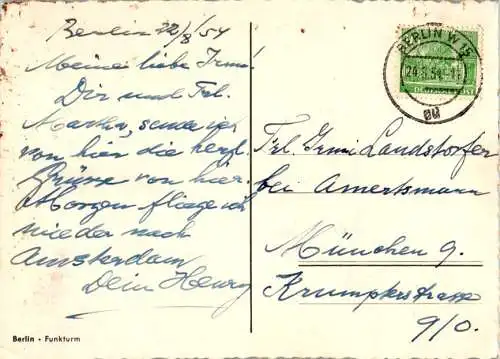 Berlin 22/8/54
Meine liebe Irmi!
Dir und Frl.
Martha, sende ich
von hier die herzl.
Grüsse von hier.
Morgen fliege ich
wieder nach
Amsterdam
Dein Henry
BERLIN W 15
24.8.54
Frl. Irmi Landstorfer
bei Amertsmann
München 9.
Krumpterstrasse
9/0.
Berlin - Funkturm